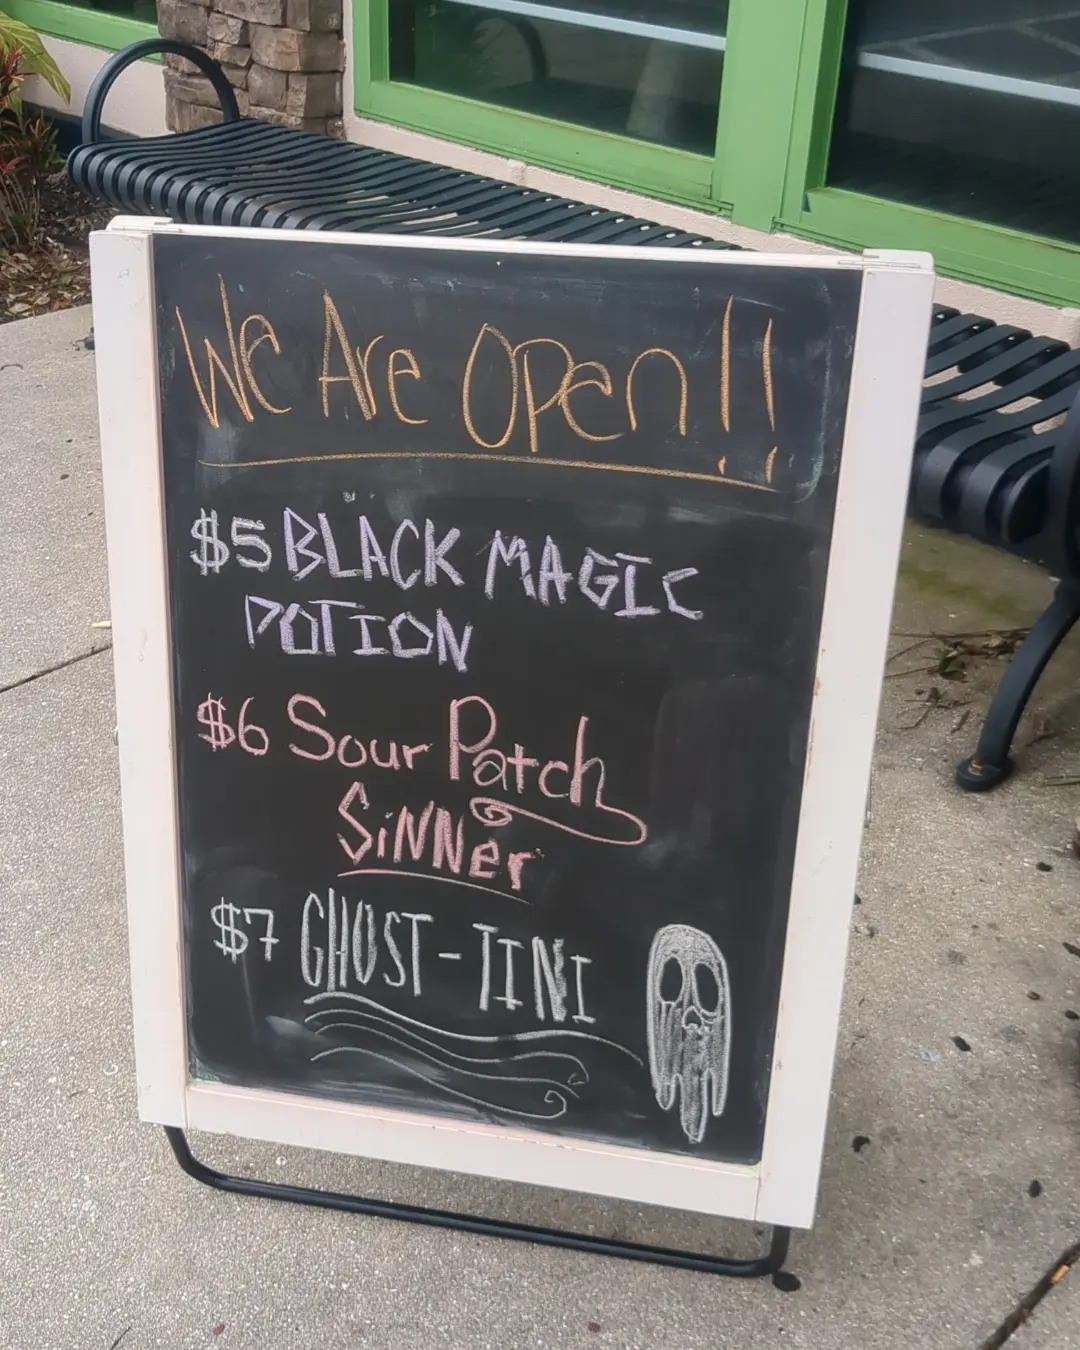 We Are Open!!
$5 BLACK MAGIC
POTION
$6 Sour Patch
SiNNer
$7 GHOST-TINI